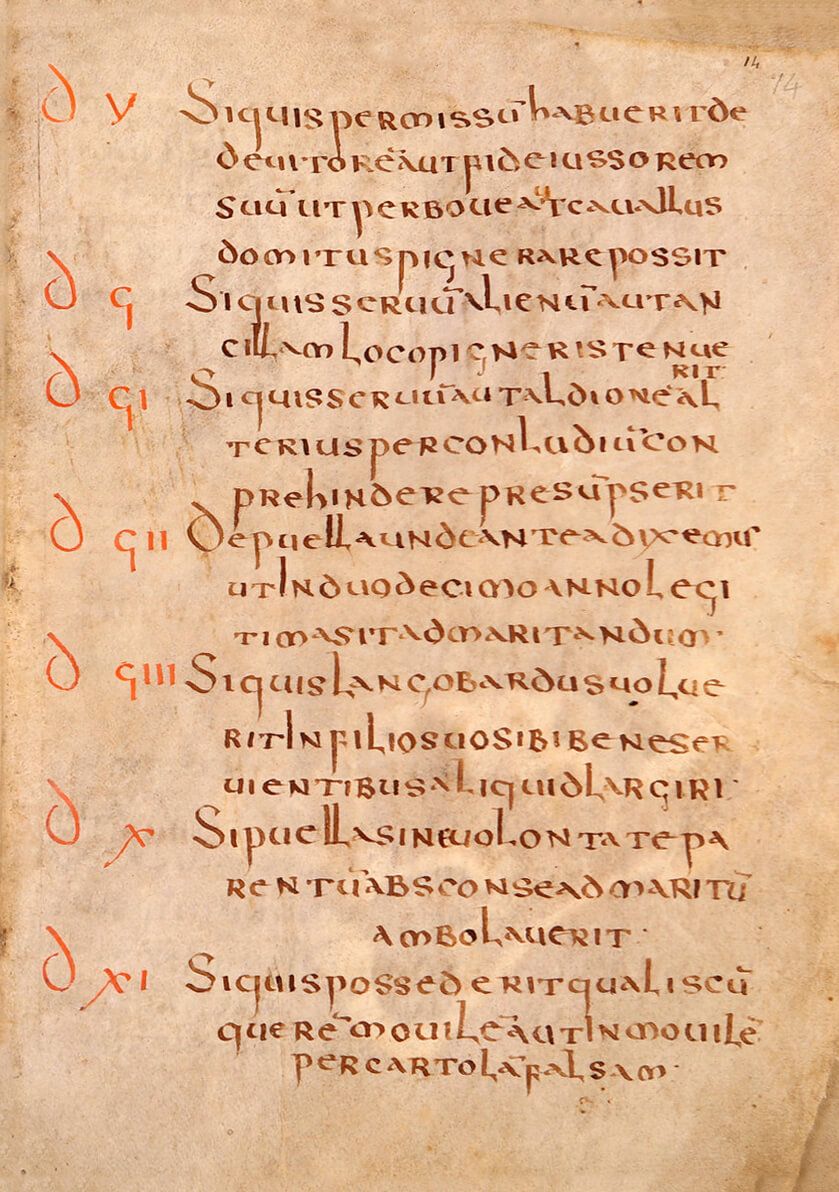 14
14
d v Si quis permissū habuerit de
deuitorē aut fideiussorem
suū ut per boue aut cauallus
domitus pignerare possit
d ϛ Si quis seruū alienū aut an
cillam loco pigneris tenue
rit
d ϛI Si quis seruū aut aldionē al
terius per conludiū con
prehindere presūpserit
d ϛII De puella unde antea dixemus
ut in duodecimo anno legi
tima sit ad maritandum·
d ϛIII Si quis langobardus uolue
rit in filio suo sibi bene ser
uientibus aliquid largiri·
d x Si puella sine uolontate pa
rentū absconse ad maritū
ambolauerit·
d xI Si quis possederit qualiscū
que rē mouilē aut inmouilē
per cartolā falsam·